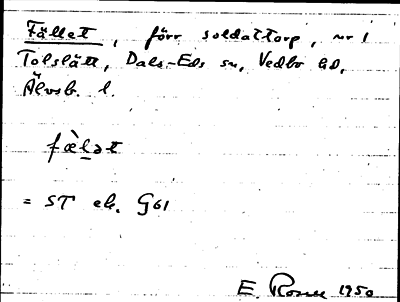 Fället, förr soldattorp, nr 1
Tolslätt, Dals-Eds sn, Vedbo hd,
Älvsb. l.
fæ̀lət
= ST ek. G61
E. Rosell 1950